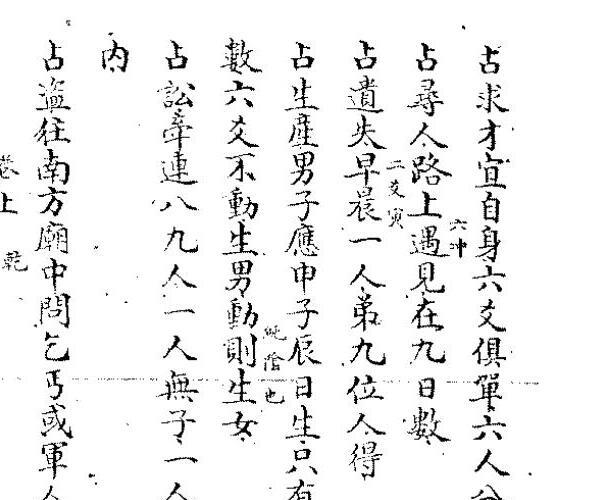 占求才宜自身六爻俱單六人分
六冲
占尋人路上遇見在九日數
二爻寅
占遺失早晨一人弟九位人得
占生產男子應申子辰日生只有
純陰也
數六爻不動生男動則生女
占訟牽連八九人一人無子一人
內
占盗往南方廟中問乞丐或軍人
卷上 乾